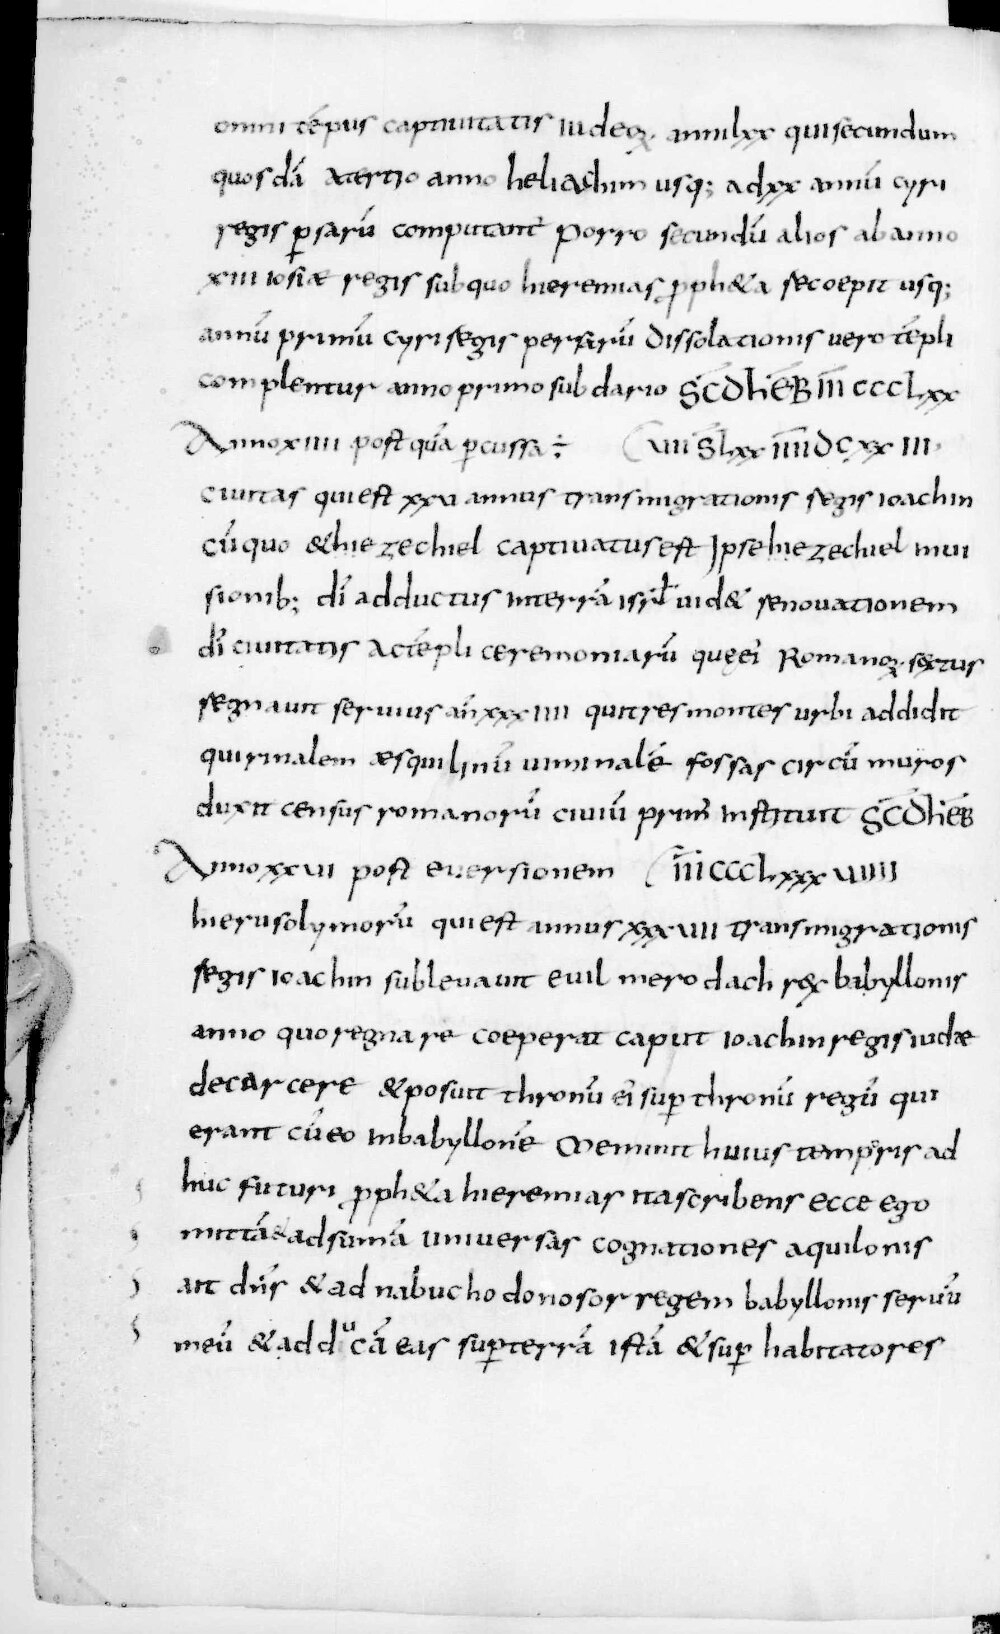 omni tēpus captiuitatis iudeoꝝ. anni lxx qui secundum
quosdā a tertio anno heliachim usq; ad xx annū cyri
regis ꝑsarū computant̄ Porro secundū alios ab anno
xiii iosiæ regis sub quo hieremias ꝓph&a se coepit usq;
annū primū cyri regis persarū Dissolationis uero tēpli
complentur anno primo sub dario S̄C̄D̄ H̄ĒB̄ īīī ccclxx
Anno xiiii post quā ꝑcussa ÷ (uii S̄ lxx īīīī DC xx iii.
ciuitas qui est xxv annus transmigrationis regis ioachin
cū quo & hiezechiel captiuatus est Ipse hiezechiel in ui
sionib; dī adductus in terrā isrl̄ uid& renouationem
dī ciuitatis ac tēpli ceremoniarū quę ei Romanoꝝ. sextus
regnauit seruius an̄ xxxiiii qui tres montes urbi addidit
quirinalem æsquilinū uiminalē fossas circū muros
duxit census romanorū ciuiū primū instituit S̄C̄D̄ H̄ĒB̄
Anno xxvii post euersionem (īīī ccclxxxviiii
hierusolymorū qui est annus xxxviii transmigrationis
regis ioachin subleuauit euil merodach rex babyllonis
anno quo regnare coeperat caput ioachin regis iudæ
de carcere & posuit thronū ei suꝑ thronū regū qui
erant cū eo in babyllonē Meminit huius temporis ad
huc futuri ꝓph&a hieremias ita scribens ecce ego
mittā & adsumā uniuersas cognationes aquilonis
ait dn̄s & ad nabuchodonosor regem babyllonis seruū
meū & adducā eas suꝑ terrā istā & suꝑ habitatores